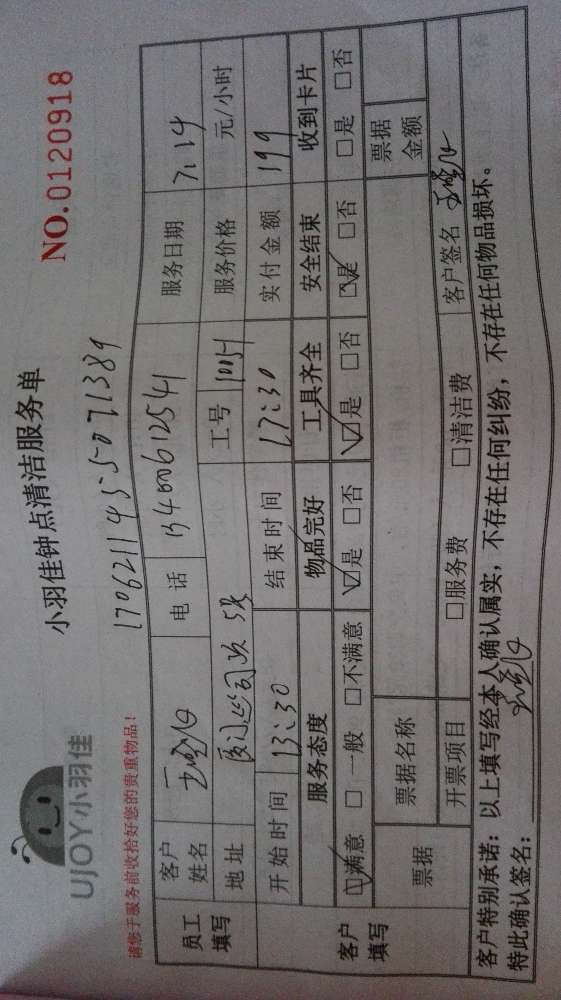 UJOY小羽佳
小羽佳钟点清洁服务单
NO.0120918
请您于服务前收拾好您的贵重物品!
员工填写
客户姓名
电话 13400612541
服务日期 7.14
地址
工号 10054
服务价格 元/小时
客户填写
开始时间 13:30
结束时间 17:30
实付金额 199
服务态度 物品完好 工具齐全 安全结束 收到卡片
☑满意 □一般 □不满意 ☑是 □否 ☑是 □否 ☑是 □否 □是 □否
票据 票据名称 票据金额
开票项目 □服务费 □清洁费 客户签名
客户特别承诺:以上填写经本人确认属实,不存在任何纠纷,不存在任何物品损坏。
特此确认签名: